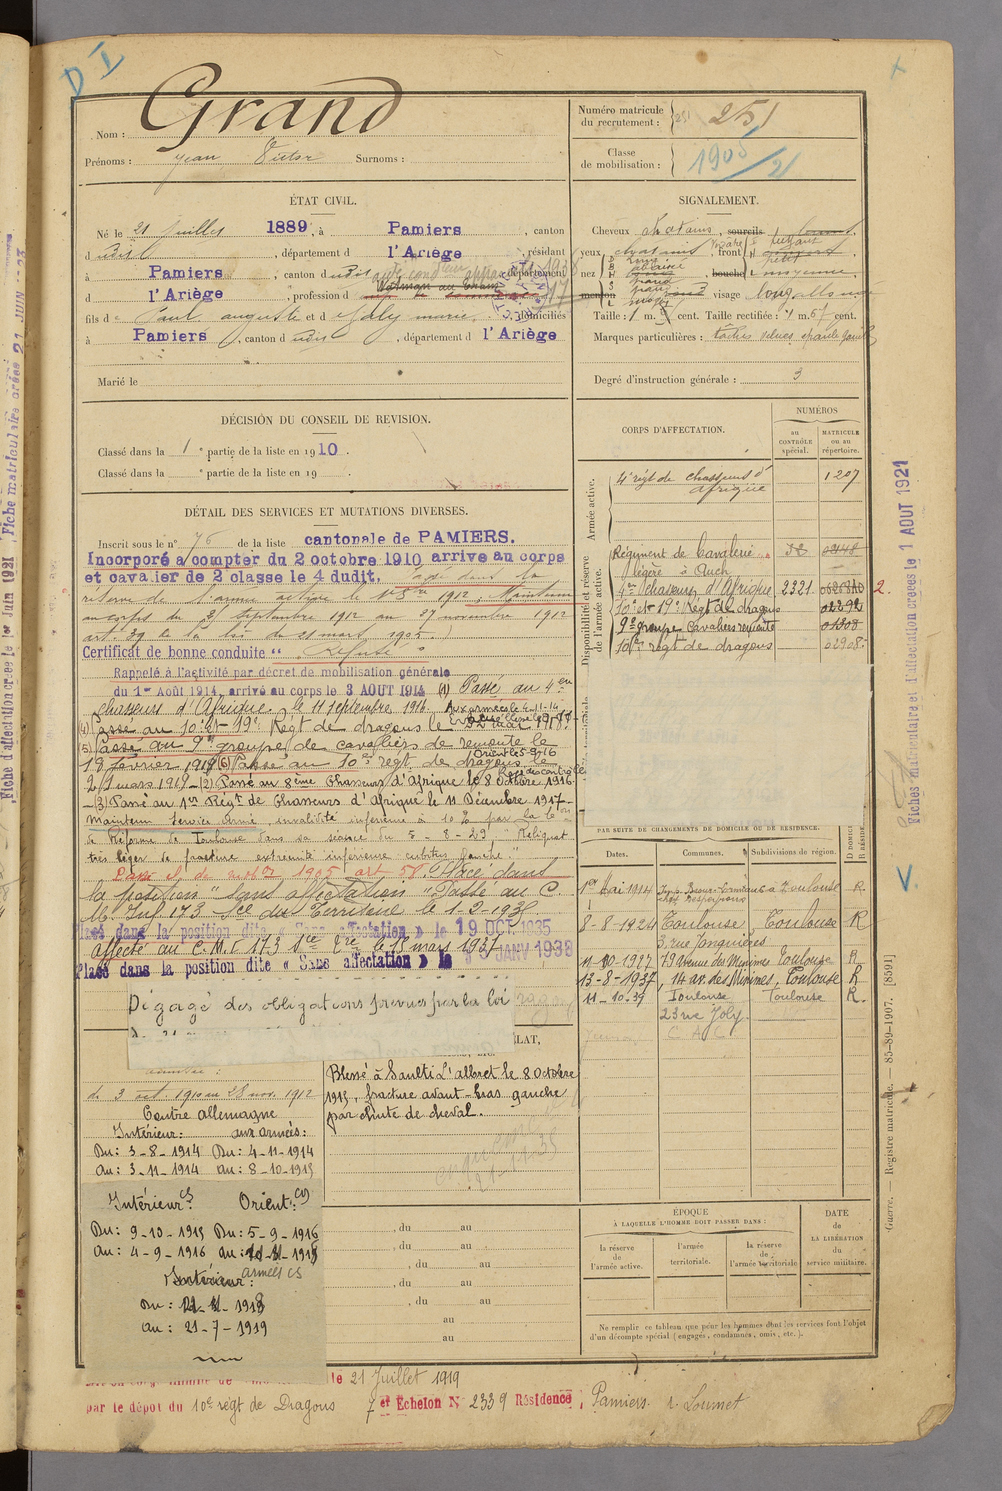 D I
Grand
Nom :
Prénoms : Jean Victor Surnoms :
Numéro matricule
du recrutement : 251
Classe
de mobilisation : 1905/21
ÉTAT CIVIL.
Né le 21 Juillet 1889, à Pamiers, canton
d udit, département d l'Ariège, résidant
à Pamiers, canton d udit, département
d l'Ariège, profession d
fils d e Paul auguste et d e Galy marie, domiciliés
à Pamiers, canton d udit, département d l'Ariège
Marié le
SIGNALEMENT.
Cheveux chatains, sourcils
yeux chatains, front
nez, bouche moyenne,
menton rond visage long
Taille : 1 m. cent. Taille rectifiée : 1 m. 57 cent.
Marques particulières : taches velues épaule gauche
Degré d'instruction générale : 3
DÉCISION DU CONSEIL DE REVISION.
Classé dans la 1 e partie de la liste en 1910.
Classé dans la e partie de la liste en 19 .
CORPS D'AFFECTATION.
NUMÉROS
au CONTRÔLE spécial.
MATRICULE ou au répertoire.
Armée active.
4e régt de chasseurs d'afrique 1207
Disponibilité et réserve de l'armée active.
Régiment de Cavalerie légère à Auch 32
4e Chasseurs d'Afrique 2321
10e et 19e Régt de dragons 02292
9e groupe Cavaliers remonte 01308
10e régt de dragons 02908
DÉTAIL DES SERVICES ET MUTATIONS DIVERSES.
Inscrit sous le n° 76 de la liste cantonale de PAMIERS.
Incorporé a compter du 2 octobre 1910 arrive au corps
et cavalier de 2 classe le 4 dudit. Passé dans la
réserve de l'armée active le 1912. Maintenu
au corps du 3 septembre 1912 au 27 novembre 1912
art. 39 de la loi du 21 mars 1905.
Certificat de bonne conduite "Refusé"
Rappelé à l'activité par décret de mobilisation générale
du 1er Août 1914, arrivé au corps le 3 AOUT 1914 (1) Passé au 4e
chasseurs d'Afrique le 11 septembre 1916. Aux armées le 4-11-14
(4) Passé au 10e et 19e Régt de dragons le 22 mai 1918.
(5) Passé au 9e groupe de cavaliers de remonte le
18 février 1919 (6) Passé au 10e régt. de dragons le
Orient le 5-9-16
21 mars 1919 - (2) Passé au 8ème Chasseurs d'Afrique le 8 Octobre 1916
- (3) Passé au 1er Régt de Chasseurs d'Afrique le 11 Décembre 1917 -
Maintenu service armé, invalidité inférieure à 10 % par la
de Réforme de Toulouse dans sa séance du 5-8-29 "Reliquat
très léger de fracture extrémité inférieure cubitus gauche"
Passé cl. de mob on 1905 art 58. Placé dans
la position "sans affectation" Passé au C.
M. Inf. 173 Sce du Territoire le 1-2-1935
Placé dans la position dite « Sans affectation » le 19 OCT. 1935
affecté au C.M.I 173 Sce Tre le 15 mars 1937
Placé dans la position dite « Sans affectation » le JANV 1938
Dégagé des obligations prevues par la loi
du 3 oct. 1910 au 28 nov. 1912
Contre allemagne
Intérieur : aux armées :
Du : 3-8-1914 Du : 4-11-1914
au : 3-11-1914 au : 8-10-1915
Intérieur CS Orient : CS
Du : 9-10-1915 Du : 5-9-1916
Au : 4-9-1916 au :
Intérieur : armées CS
Du :
au : 21-7-1919
Blessé à Saulti L'albret le 8 Octobre
1915, fracture avant-bras gauche
par chute de cheval.
, du au
, du au
, du au
, du au
, du au
au
au
PAR SUITE DE CHANGEMENTS DE DOMICILE OU DE RÉSIDENCE.
Dates. Communes. Subdivisions de région. D DOMICILE R RÉSIDENCE
1er Mai 1914 Toulouse R
8-8-1924 Toulouse, 3, rue Jonquières Toulouse R
11-10-1927 79 avenue des Minimes Toulouse R
13-8-1937, 14 av. des Minimes, Toulouse R
11-10-39 Toulouse 23 rue Joly. Toulouse R.
CAC
ÉPOQUE
À LAQUELLE L'HOMME DOIT PASSER DANS :
la réserve de l'armée active.
l'armée territoriale.
la réserve de l'armée territoriale
DATE de LA LIBÉRATION du service militaire.
Ne remplir ce tableau que pour les hommes dont les services font l'objet
d'un décompte spécial (engagés, condamnés, omis, etc.).
le 21 Juillet 1919
par le dépôt du 10e régt de Dragons 7 e Echelon N° 2339 Résidence : Pamiers. r. Loumet
Guerre. — Registre matricule. — 85-89-1907. [8591]
Fiches matriculaire et d'affectation creées le 1 AOUT 1921
Fiche d'affectation creée le 1er Juin 1921, Fiche matriculaire creée 21 JUIN